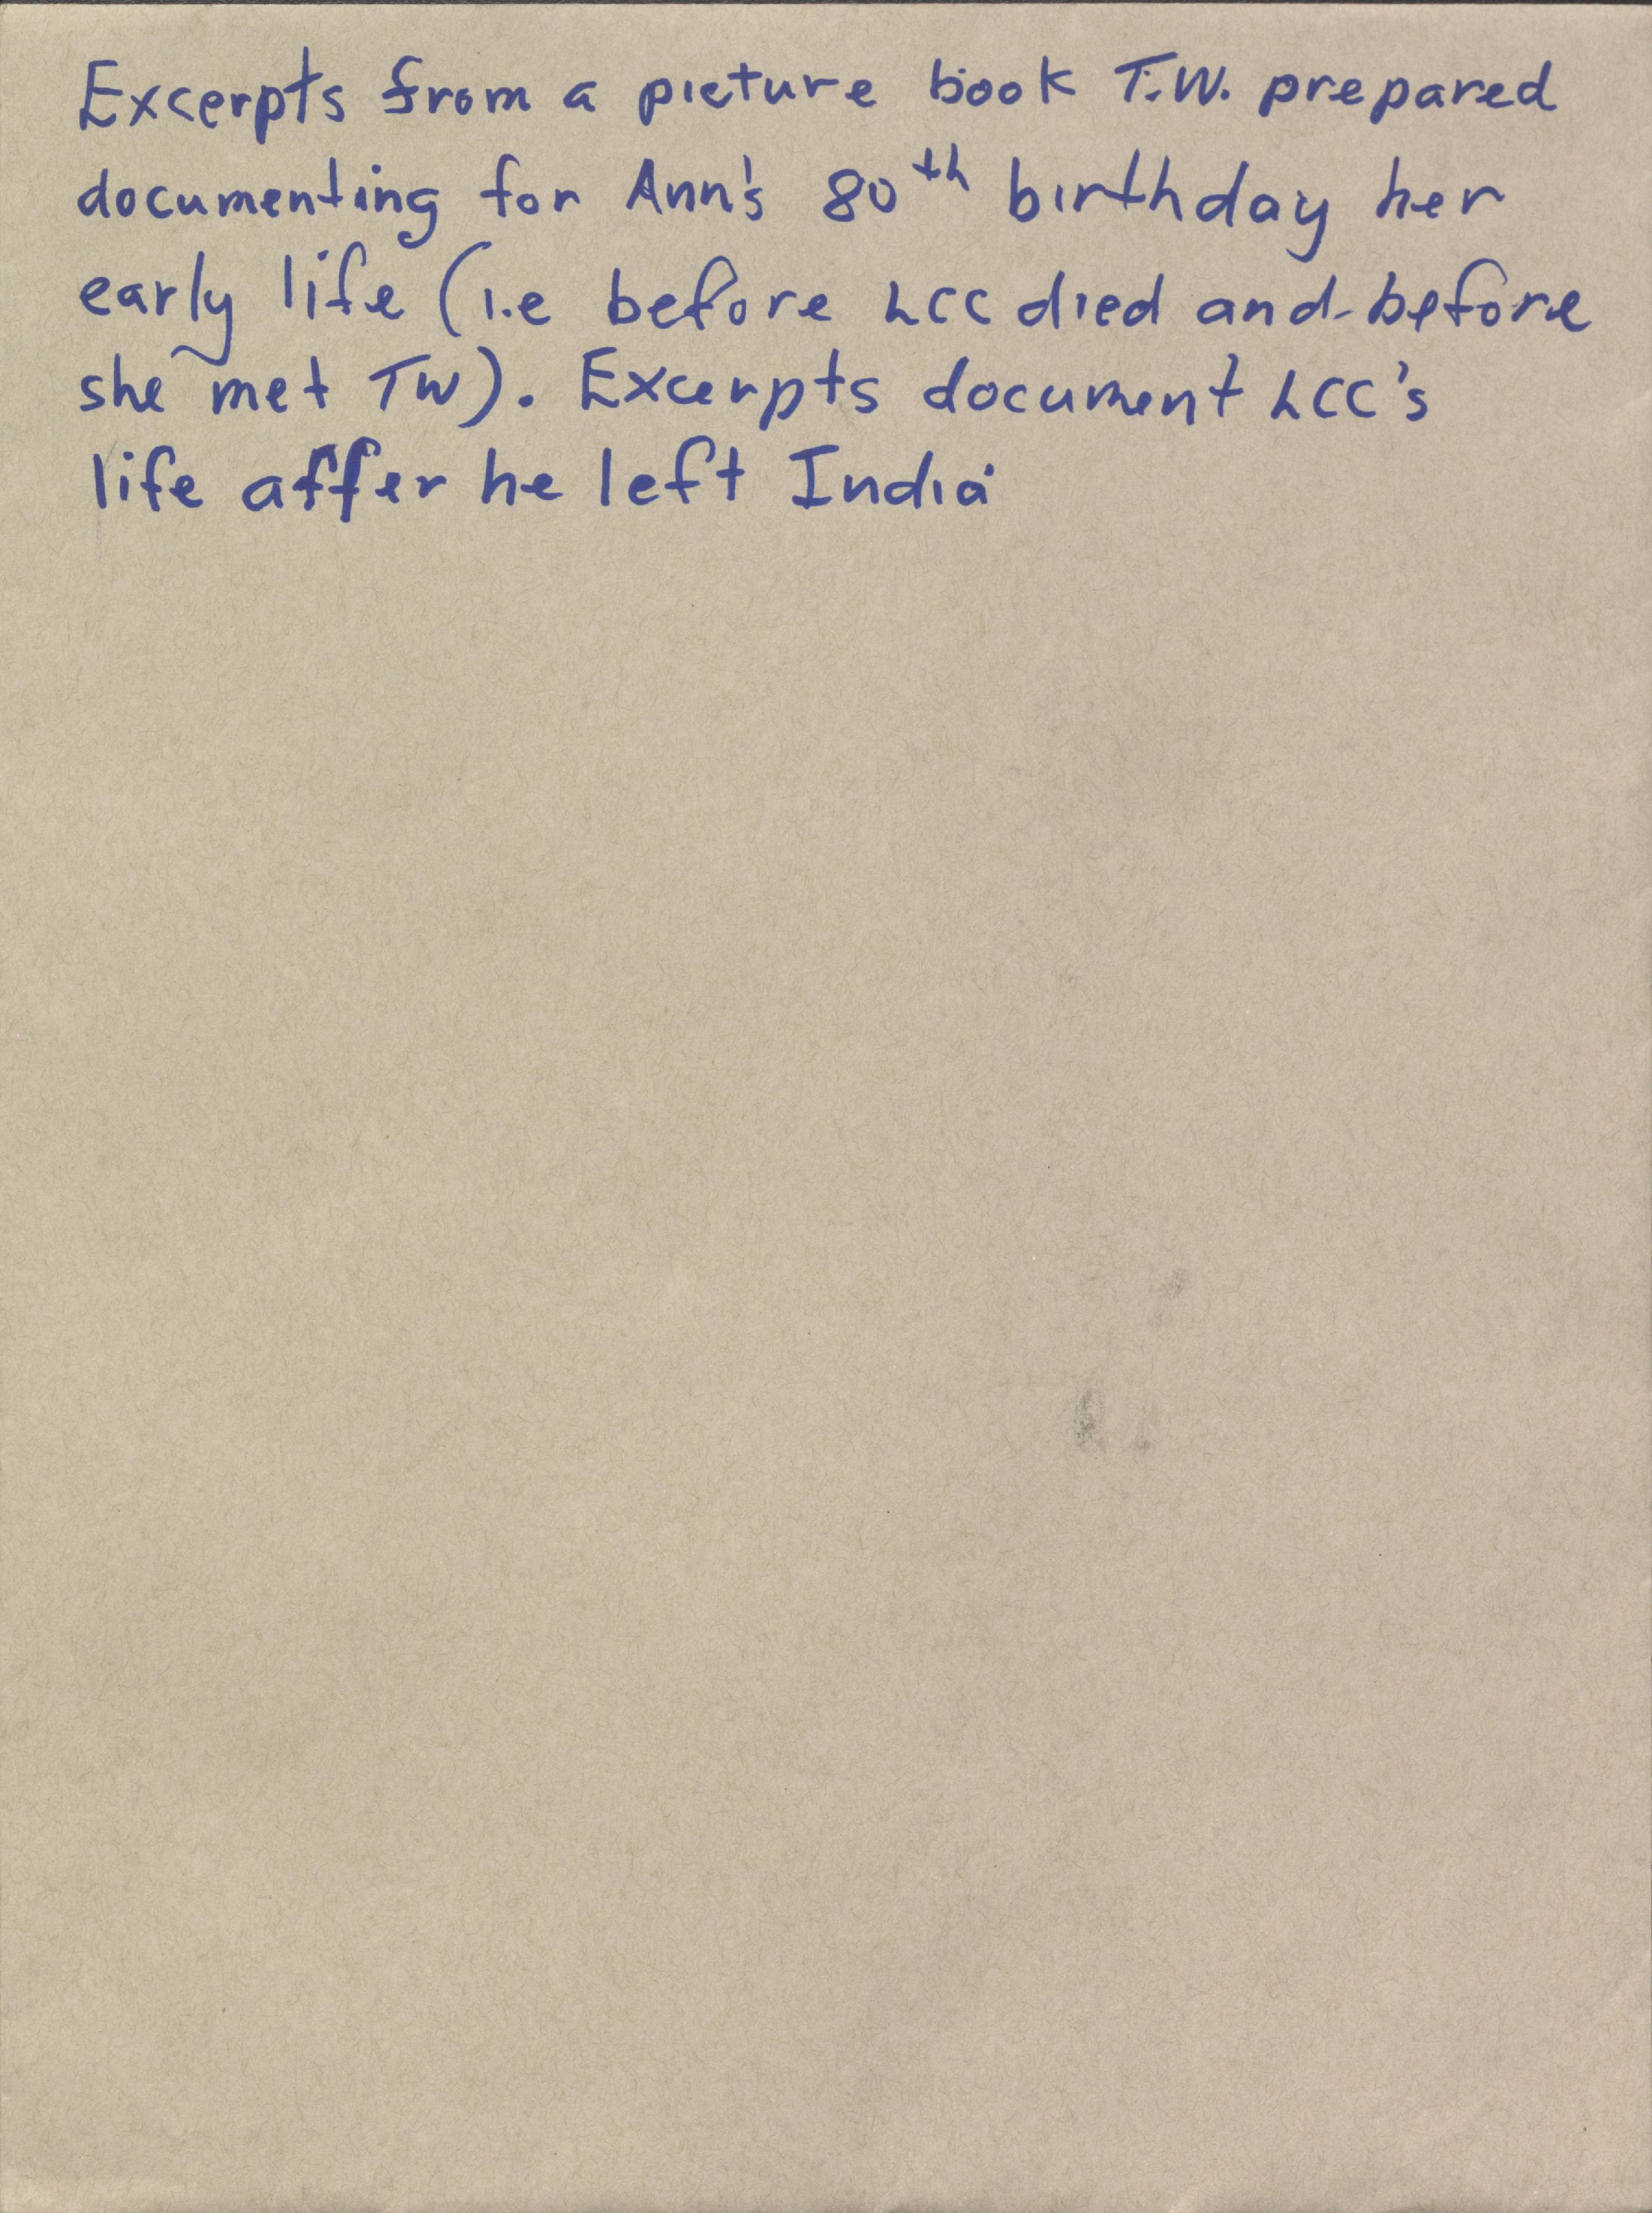 Excerpts from a picture book T.W. prepared
documenting for Ann's 80th birthday her
early life (i.e before LCC died and before
she met TW). Excerpts document LCC's
life after he left India